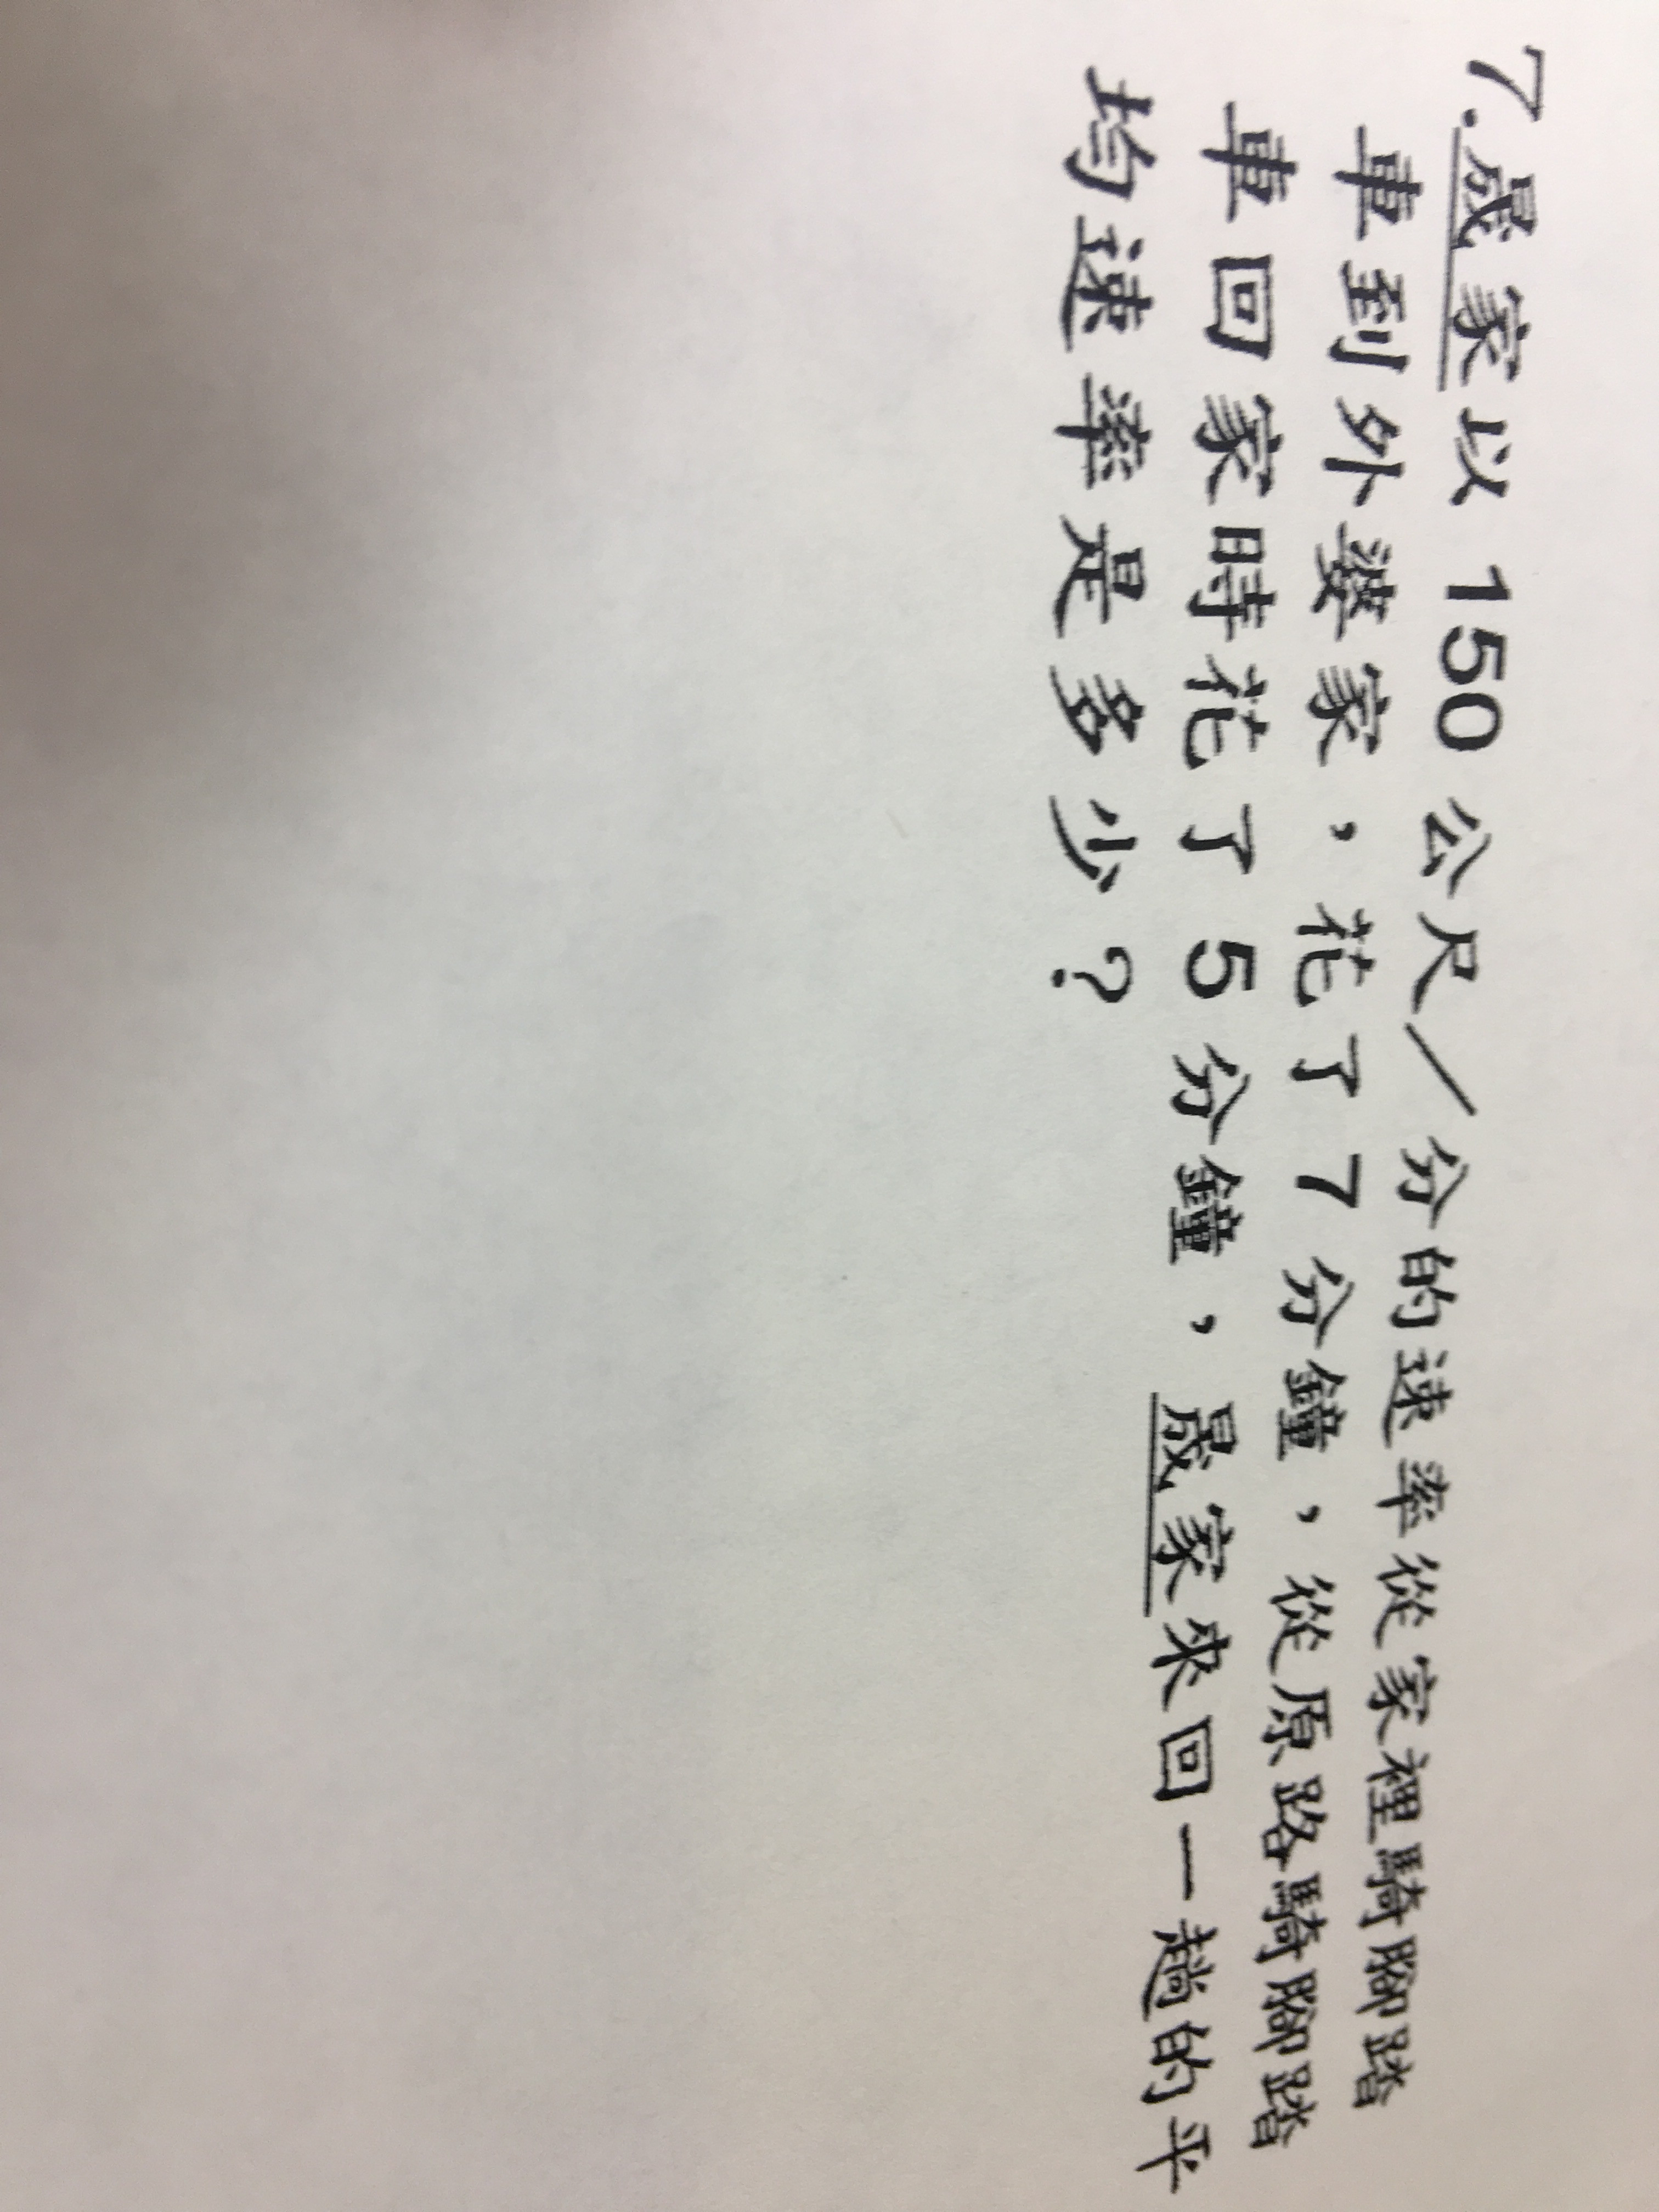 7.晟家以 150 公尺／分的速率從家裡騎腳踏
車到外婆家，花了 7 分鐘，從原路騎腳踏
車回家時花了 5 分鐘，晟家來回一趟的平
均速率是多少？